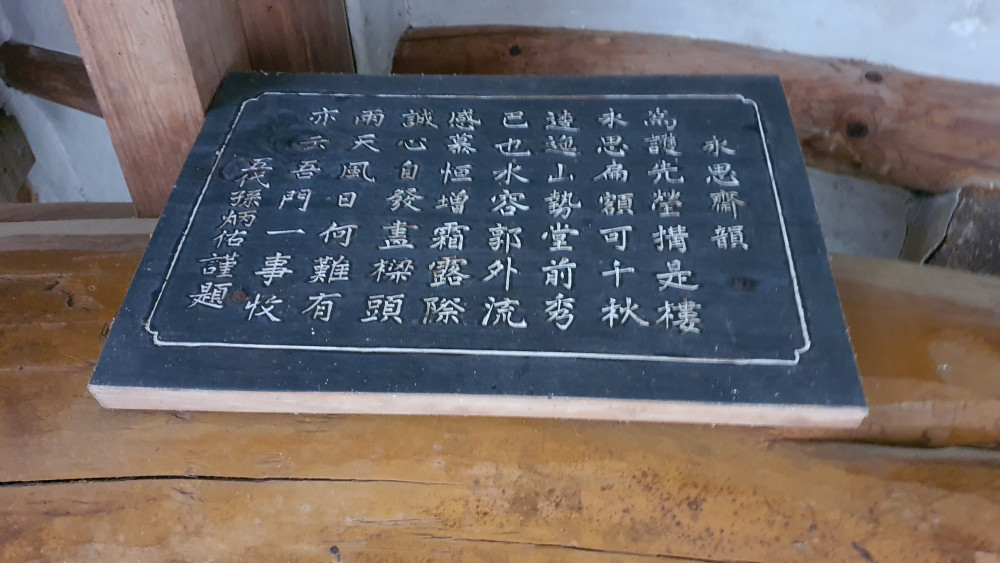 永思齋韻
為護先塋搆是樓
永思扁額可千秋
逶迤山勢堂前秀
巳也水容郭外流
感慕恒增霜露際
誠心自發畫樑頭
雨天風日何難有
亦云吾門一事
五代孫炳佑謹題